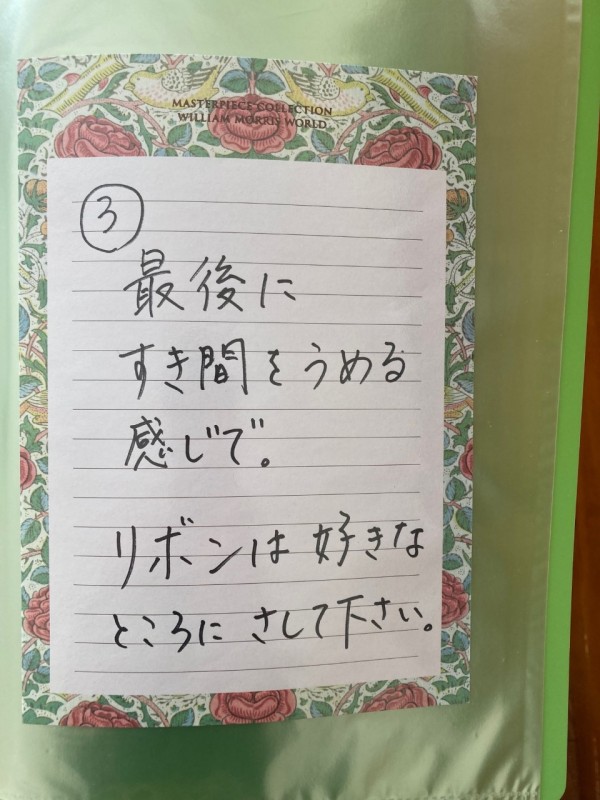 MASTERPIECE COLLECTION
WILLIAM MORRIS WORLD
③
最後に
すき間をうめる
感じで。
リボンは好きな
ところにさして下さい。